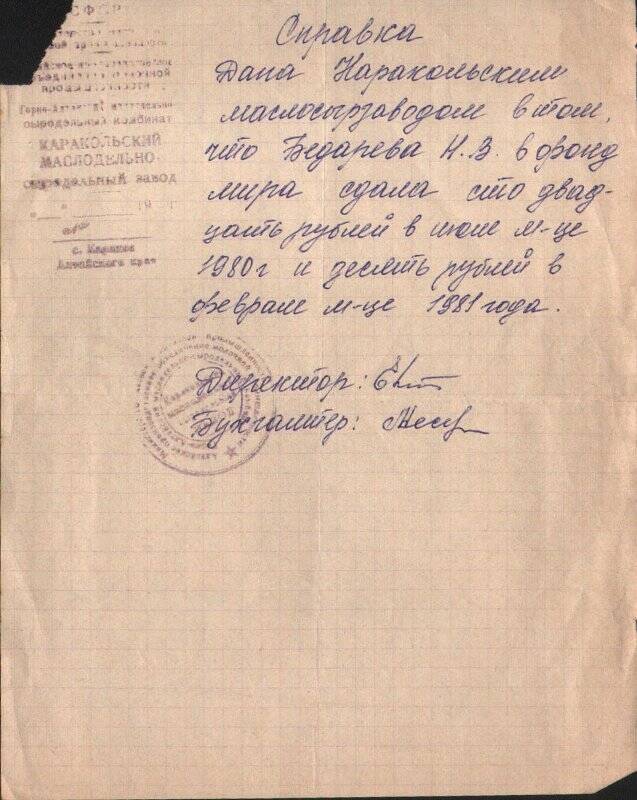 РСФСР
Горно-Алтайский маслодельно-
сыродельный комбинат
КАРАКОЛЬСКИЙ
МАСЛОДЕЛЬНО-
сыродельный завод
Алтайского края
Справка
Дана Каракольским
маслосырзаводом в том,
что Бедарева Н.В. в фонд
мира сдала сто двад-
цать рублей в июле м-це
1980г и десять рублей в
феврале м-це 1981 года.
Директор:
Бухгалтер: